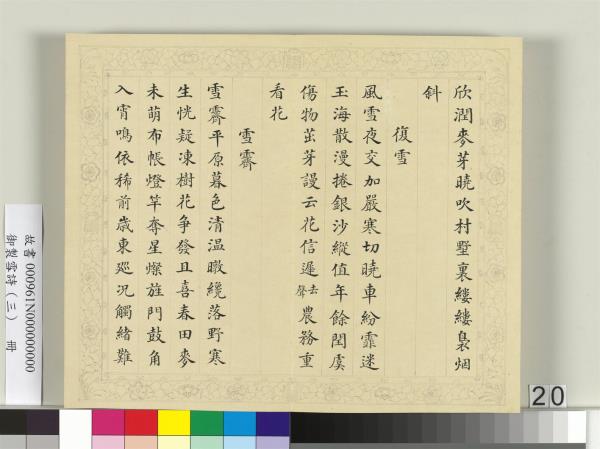 欣潤麥芽曉吹村墅裏縷縷裊烟
斜
復雪
風雪夜交加嚴寒切曉車紛霏迷
玉海散漫捲銀沙縱值年餘閏虞
傷物茁芽謾云花信遲去聲農務重
看花
雪霽
雪霽平原暮色清温暾纔落野寒
生恍疑凍樹花爭發且喜春田麥
未萌布帳燈竿奪星燦旌門鼓角
入宵鳴依稀前歲東廵况觸緒難
故書 000961N000000000
御製雪詩（三） 冊
20